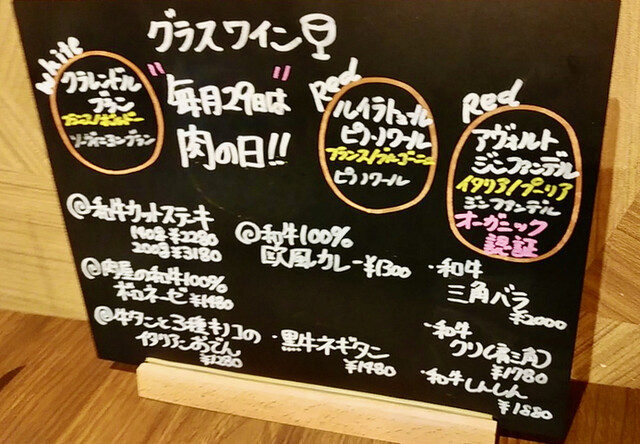 グラスワイン
"毎月29日は"
肉の日!!
white
クラレンドル
ブラン
フランス/ボルドー
ソーヴィニヨンブラン
Red
ルイラトゥール
ピノノワール
フランス/ブルゴーニュ
ピノノワール
Red
アヴェルト
ジンファンデル
イタリア/プーリア
ジンファンデル
オーガニック
認証
@和牛カットステキ
150g ¥2280
200g ¥3180
@肉屋の和牛100%
ボロネーゼ ¥1480
@牛タンと3種キノコの
イタリアンおでん
¥1280
@和牛100%
欧風カレー ¥1300
・黒牛ネギタン
¥1480
・和牛
三角バラ
¥2000
・和牛
クリ(肩三角)
¥1780
・和牛しんしん
¥1880